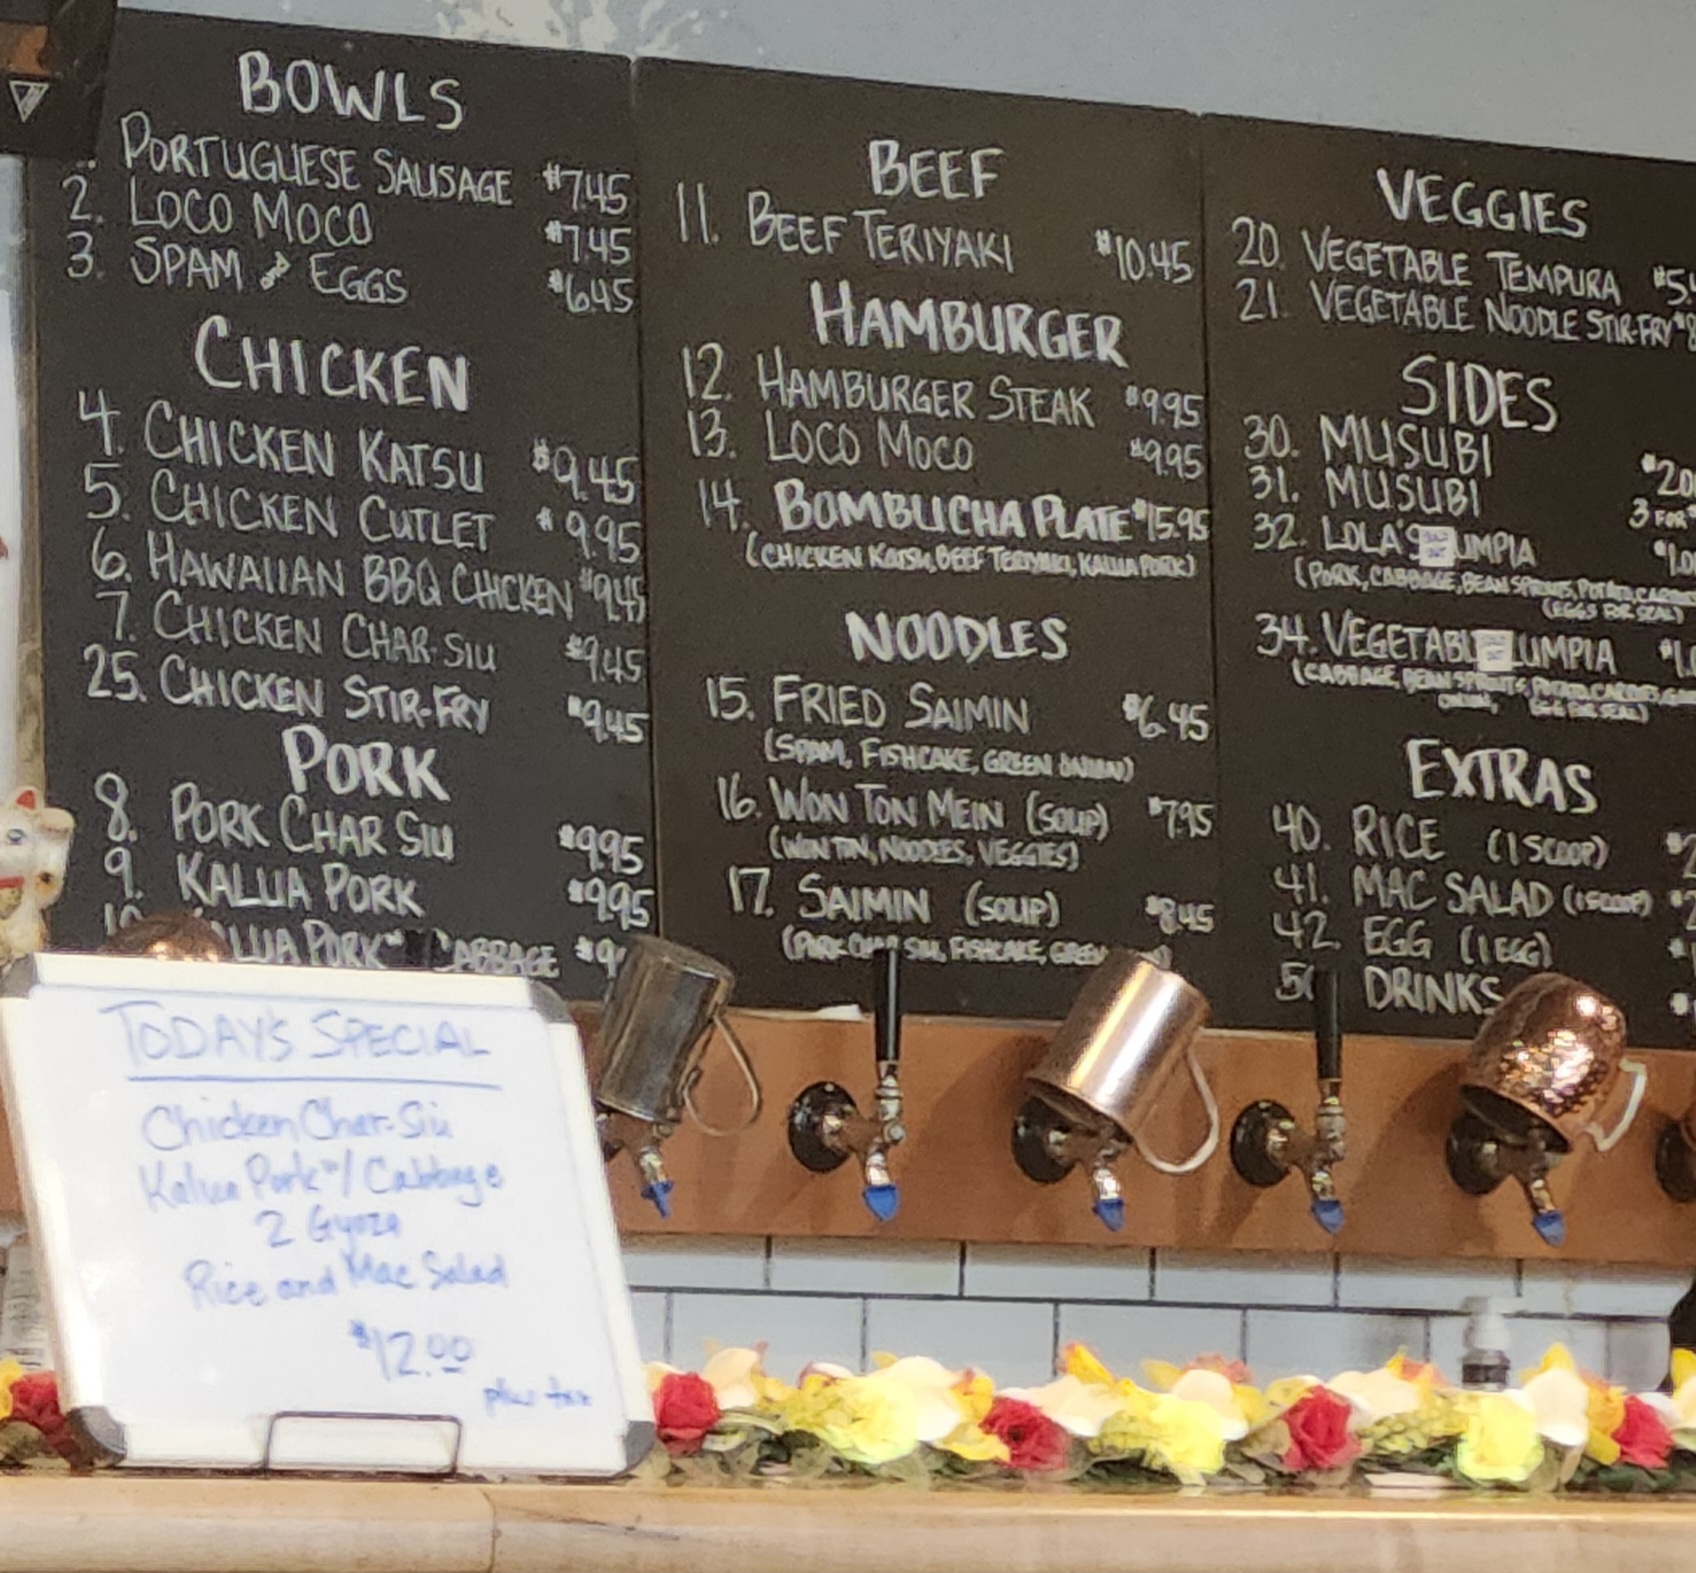 BOWLS
PORTUGUESE SAUSAGE $7.45
2. LOCO MOCO $7.45
3. SPAM and EGGS $6.45
CHICKEN
4. CHICKEN KATSU $9.45
5. CHICKEN CUTLET $9.95
6. HAWAIIAN BBQ CHICKEN $9.45
7. CHICKEN CHAR-SIU $9.45
25. CHICKEN STIR-FRY $9.45
PORK
8. PORK CHAR SIU $9.95
9. KALUA PORK $9.95
10 LUA PORK W/ CABBAGE $9
BEEF
11. BEEF TERIYAKI $10.45
HAMBURGER
12. HAMBURGER STEAK $9.95
13. LOCO MOCO $9.95
14. BOMBUCHA PLATE $15.95
(CHICKEN KATSU, BEEF TERIYAKI, KALUA PORK)
NOODLES
15. FRIED SAIMIN $6.45
(SPAM, FISHCAKE, GREEN ONION)
16. WON TON MEIN (SOUP) $7.95
(WON TON, NOODLES, VEGGIES)
17. SAIMIN (SOUP) $8.45
(PORK CHAR SIU, FISHCAKE, GREEN
VEGGIES
20. VEGETABLE TEMPURA $5.4
21. VEGETABLE NOODLE STIR-FRY $8
SIDES
30. MUSUBI $2.0
31. MUSUBI 3 FOR $
32. LOLA'S LUMPIA $1.0
(PORK, CABBAGE, BEAN SPROUTS, POTATO, CARROTS
(EGGS FOR SEAL)
34. VEGETABLE LUMPIA $1.0
(CABBAGE, BEAN SPROUTS, POTATO, CARROTS,
ONION, EGG FOR SEAL)
EXTRAS
40. RICE (1 SCOOP) $2
41. MAC SALAD (1 SCOOP) $2
42. EGG (1 EGG) $1
50 DRINKS $
TODAY'S SPECIAL
Chicken Char-Siu
Kalua Pork w/ Cabbage
2 Gyoza
Rice and Mac Salad
$12.00
plus tax